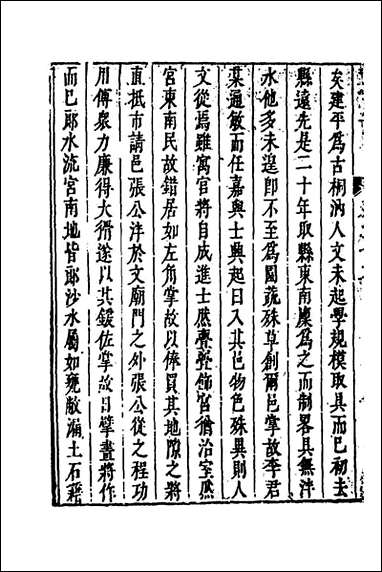 矣建平為古桐汭人文未起學規模取具而已初去
縣遠先是二十年取縣東南廛為之而制畧具無泮
水他多未遑卽不至為園蔬殊草創爾邑掌故李君
某通敏而任嘉與士興起日入其邑物色殊異則人
文從焉雖寓官將自成進士然亹亹飾官猶治室然
宮東南民故錯居如左角掌故以俸買其地隙之將
直抵市請邑張公泮於文廟門之外張公從之程功
用傅衆力廉得大猾遂以其鍰佐掌故日擘畫將作
而已郞水流宮南地皆郞沙水屬如甕敝漏土石蘓